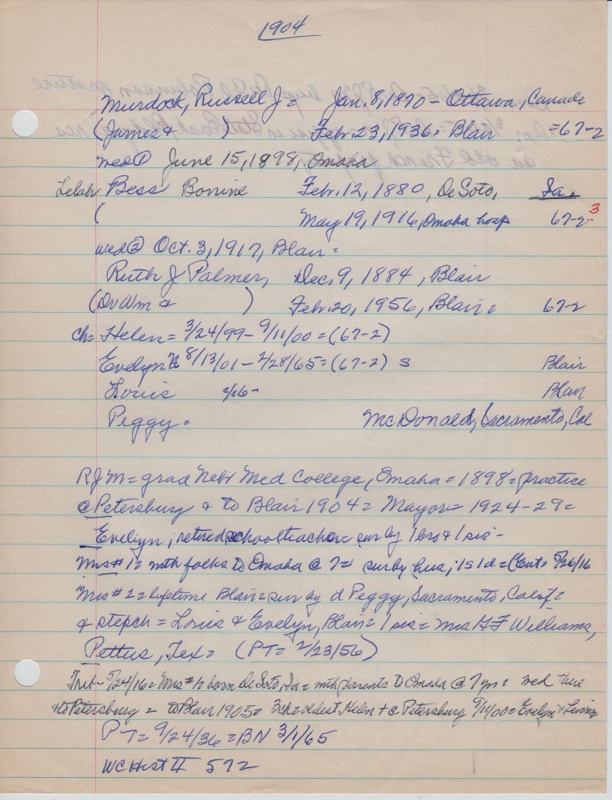 1904
Murdock, Russell J = Jan. 8, 1870 - Ottawa, Canada
(James & ) Feb. 23, 1936 = Blair = 67-2
wed① June 15, 1898, Omaha
Lelah Bess Bonine Feb. 12, 1880, DeSoto, Ia.
( May 19, 1916, Omaha hosp 67-2 3
wed② Oct. 3, 1917, Blair =
Ruth J Palmer, Dec. 9, 1884, Blair
(Dr Wm & ) Feb. 20, 1956, Blair = 67-2
ch = Helen = 3/24/99 - 9/11/00 = (67-2)
Evelyn 8/13/01 - 2/28/65 = (67-2) s Blair
Louis Blair
Peggy = McDonald, Sacramento, Cal
RJM = grad Nebr Med College, Omaha = 1898 = practice
@ Petersburg & to Blair 1904 = Mayor = 1924-29 =
Evelyn, retired schoolteacher = sur by 1 bro & 1 sis -
Mrs #1 = mth folks to Omaha @ 7 = sur by hus, 1s 1d = (Ent = 5/26/16
Mrs #2 = lifetime Blair = sur by d Peggy, Sacramento, Calif =
& stepch = Louis & Evelyn, Blair = 1 sis = Mrs HF Williams,
Pettus, Tex = (PT = 2/23/56)
Trib - 5/24/16 = Mrs #1 born DeSoto, Ia = mth parents to Omaha @ 7 yrs = wed there
& to Petersburg = to Blair 1905 = 3ch = oldest Helen + @ Petersburg 9/11/00 = Evelyn & Louis
PT = 9/24/36 = BN 3/1/65
WC Hist II 572